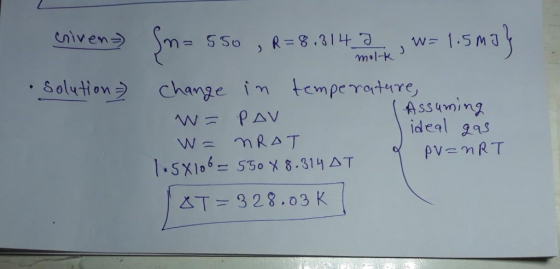 Given ⇒ {n = 550, R = 8.314 J/mol-K, W = 1.5 MJ}
• Solution ⇒ change in temperature,
W = PΔV
W = nRΔT
1.5×10⁶ = 550 × 8.314 ΔT
ΔT = 328.03 K
Assuming
ideal gas
PV = nRT